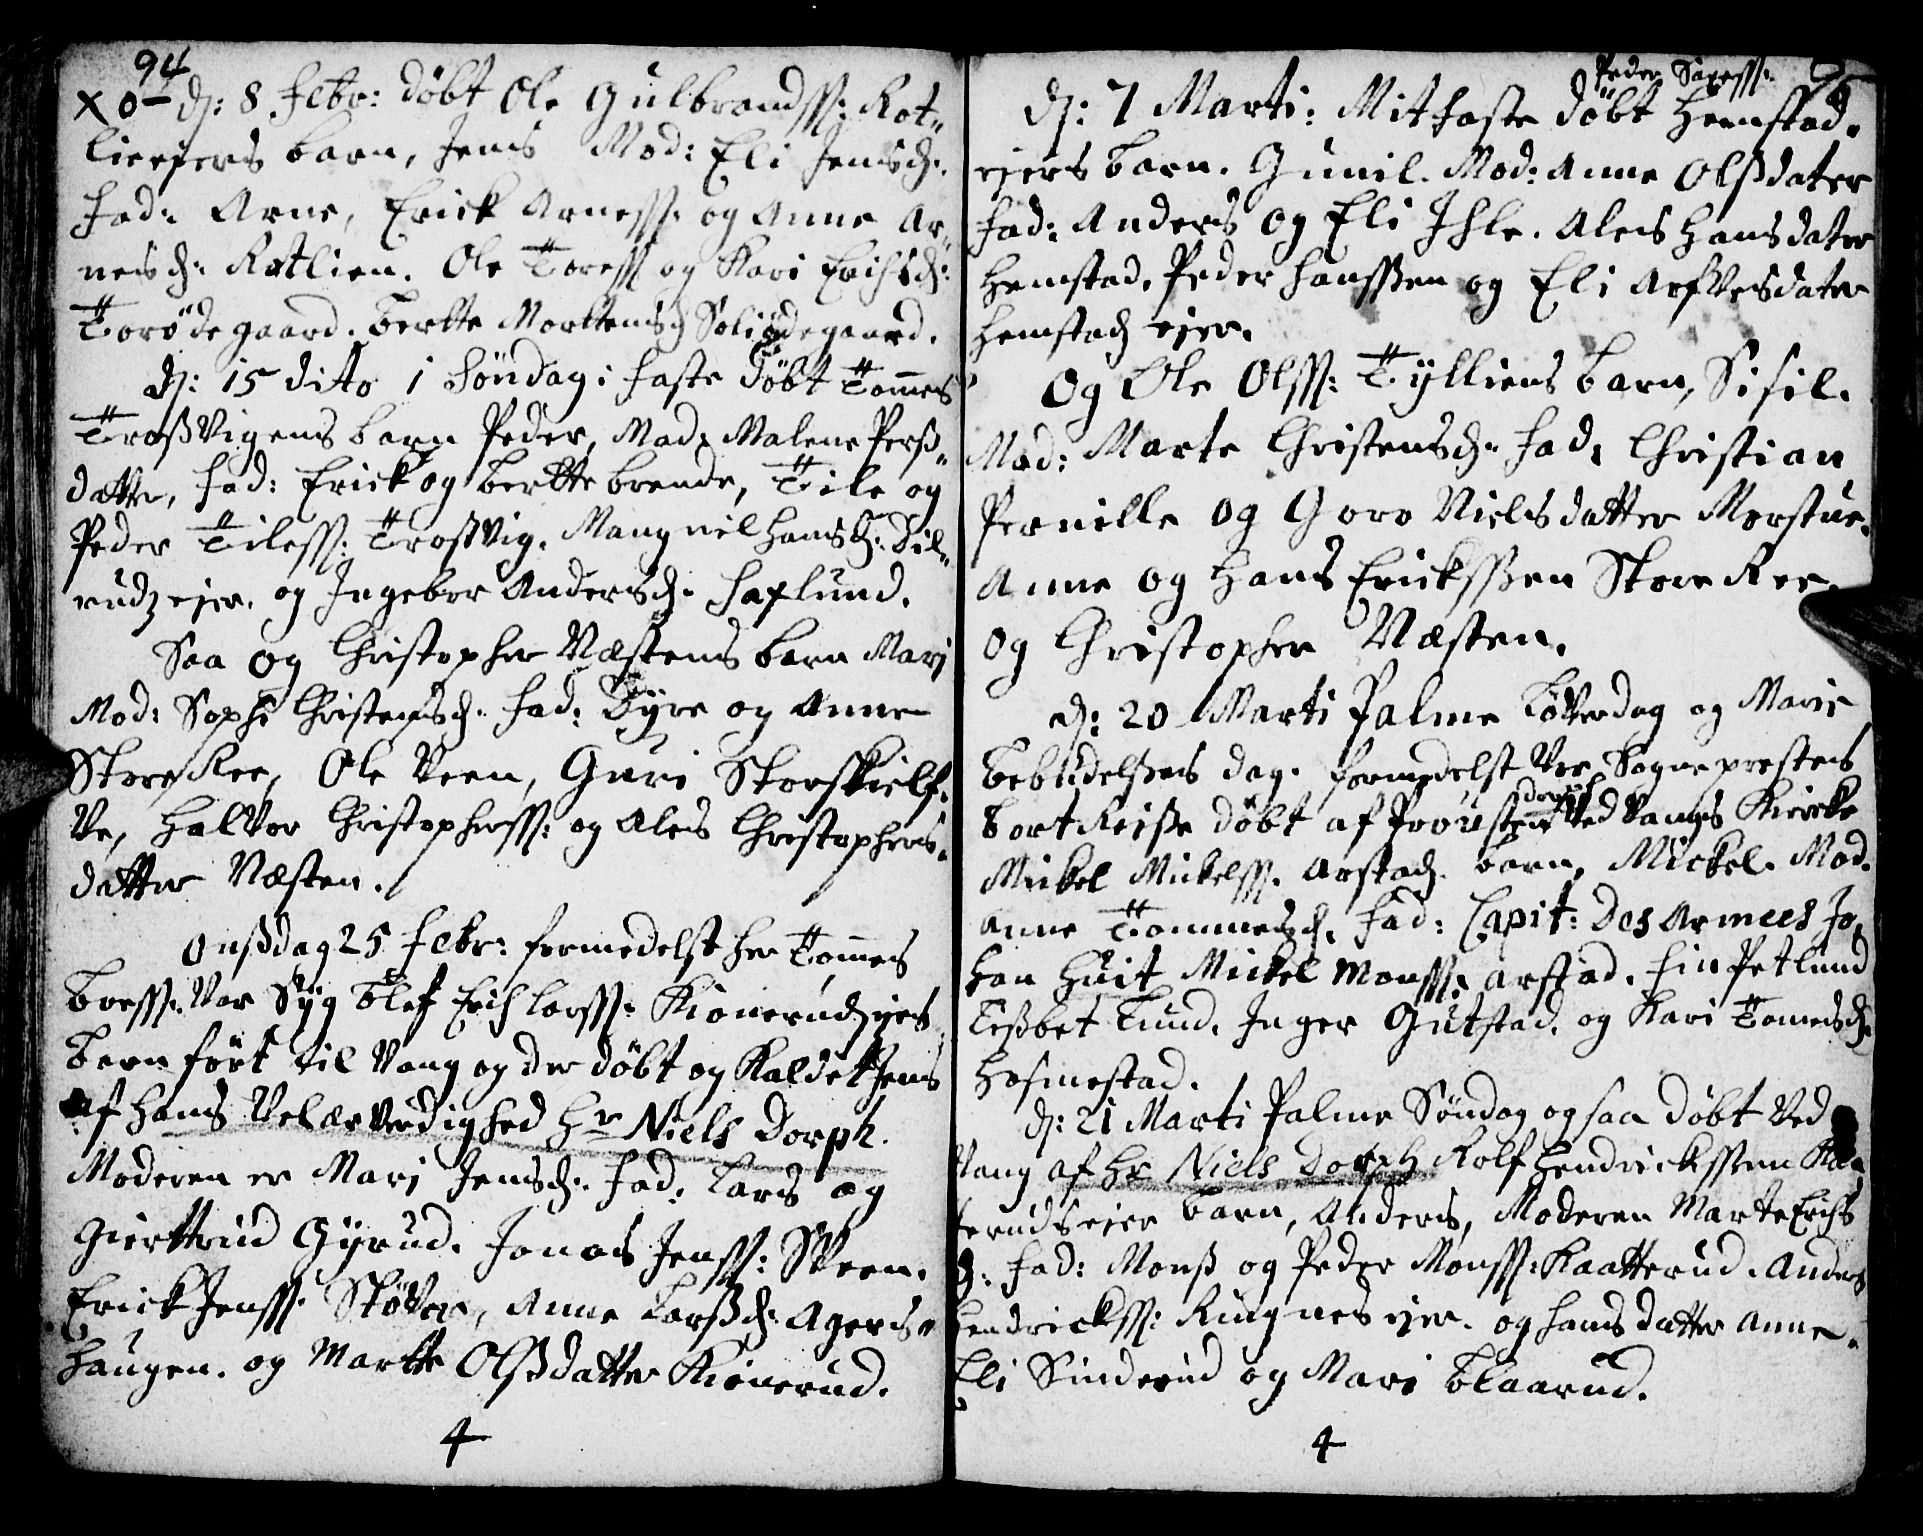 94
X O – dj: 8 Febr: döbt Ole Gulbrandss: Rot„
lieejers barn, Jens Mod: Eli Jensd:
Fad: Arne, Erick Arness: og Anne Ar„
nesd: Rotlien. Ole Toress og Kari Erichsd:
Torödegaard. Berte Mortensd Soliödegaard.
dj: 15 dito 1 Söndag i Faste döbt Tommes
Troßvigens barn Peder, Mod: Malene Perß„
datter, Fad: Erick og Bertte brende, Tile og
Peder Tiless: Troßvig. Mangnil Hansd: Dil„
rudz ejer. og Ingebor Andersd: Haflund.
Saa og Christopher Næstens barn Mari
Mod: Sophi Christensd: Fad: Dyre og Anne
Store Ree, Ole Veen, Guri Storskielf„
Ve, Halvor Christopherss: og Aleis Christophers„
datter Næsten.
Onßdag 25 Febr: formedelst Her Tommes
Boess: Var Syg blef Erich Larss: Kionerudzejers
barn fört til Vang og der döbt og Kaldet Jens
af hans Velærverdighed Hr Niels Dorph.
Moderen er Mari Jensd: Fad: Lars og
Giertrud Gyrud. Jonas Jenss: Skeen.
Erick Jenss: Stöver, Anne Larßd: Agers„
haugen. og Marte Olßdatter Kionerud.
4
95
Peder Saxess:
dj: 7 Marti: Mitfaste döbt Hemstad„
ejers barn. Gunil. Mod: Anne Olßdater
Fad: Anders og Eli Ihle. Aleis Hansdater
Hemstad, Peder Hansßen og Eli Arfvesdater
Hemstad ejer.
Og Ole Olss: Tylliens barn, Sisil.
Mod: Marte Christensd: Fad: Christian
Pernille og Goro Nielsdatter Morstue.
Anne og Hans Ericksßen Store Ree.
og Christopher Næsten.
dj: 20 Marti Palme Löverdag og Marie
bebudelßens dag. formedelst Vor Sogneprestens
dorph
bort Reiße döbt af Proußten Ved Vangs Kircke
Mickel Mickelss: Arstad. barn, Mickel. Mod.
Anne Tommesd. Fad: Capit: Des Armees Jo„
han Huit Mickel Monss: Arstad. Siv Petlund
Lißbet Lund. Inger Gutstad. og Kari Tomesd:
Hosmestad.
dj: 21 Marti Palme Söndag ogsaa döbt Ved
Vang af Hr Niels Dorph Rolf Hendricksßen Kaa„
terudsejer barn, Anders, Moderen Marte Erichs
d: Fad: Monß og Peder Monss: Kaatterud. Anders
Hendrickss: Ringnes ejer. og hans datter Anne.
Eli Sinderud og Mari Blaarud.
4